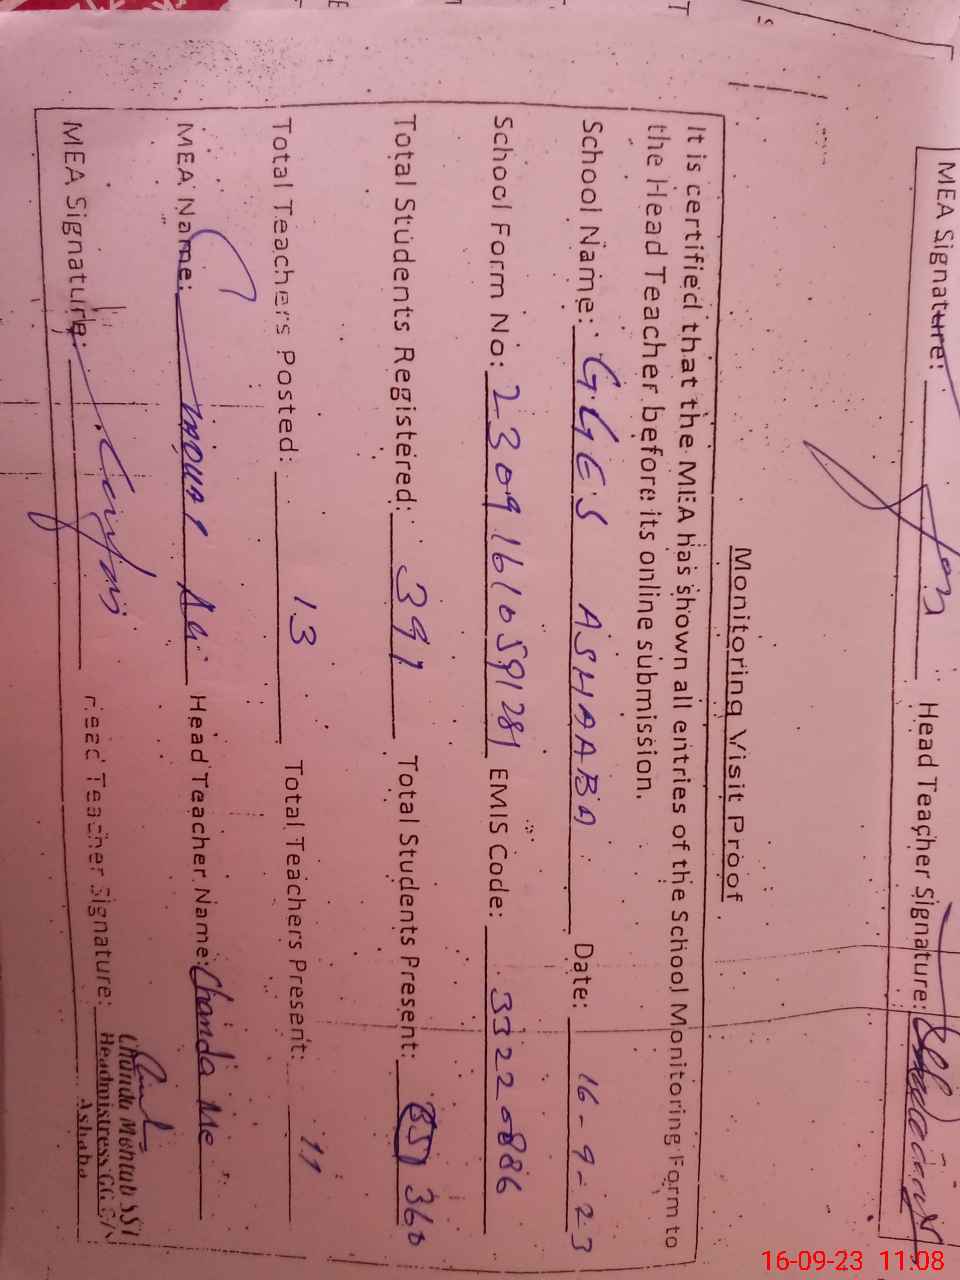 MEA Signature: Head Teacher Signature:
Monitoring Visit Proof
It is certified that the MEA has shown all entries of the School Monitoring Form to
the Head Teacher before its online submission.
School Name: GGES ASHAABA Date: 16-9-23
School Form No: 23091610591281 EMIS Code: 33220886
Total Students Registered: 391 Total Students Present: 351 360
Total Teachers Posted: 13 Total Teachers Present: 11
MEA Name: Ali Head Teacher Name: Chanda
MEA Signature: Head Teacher Signature:
Headmistress
Ashaba
16-09-23 11:08